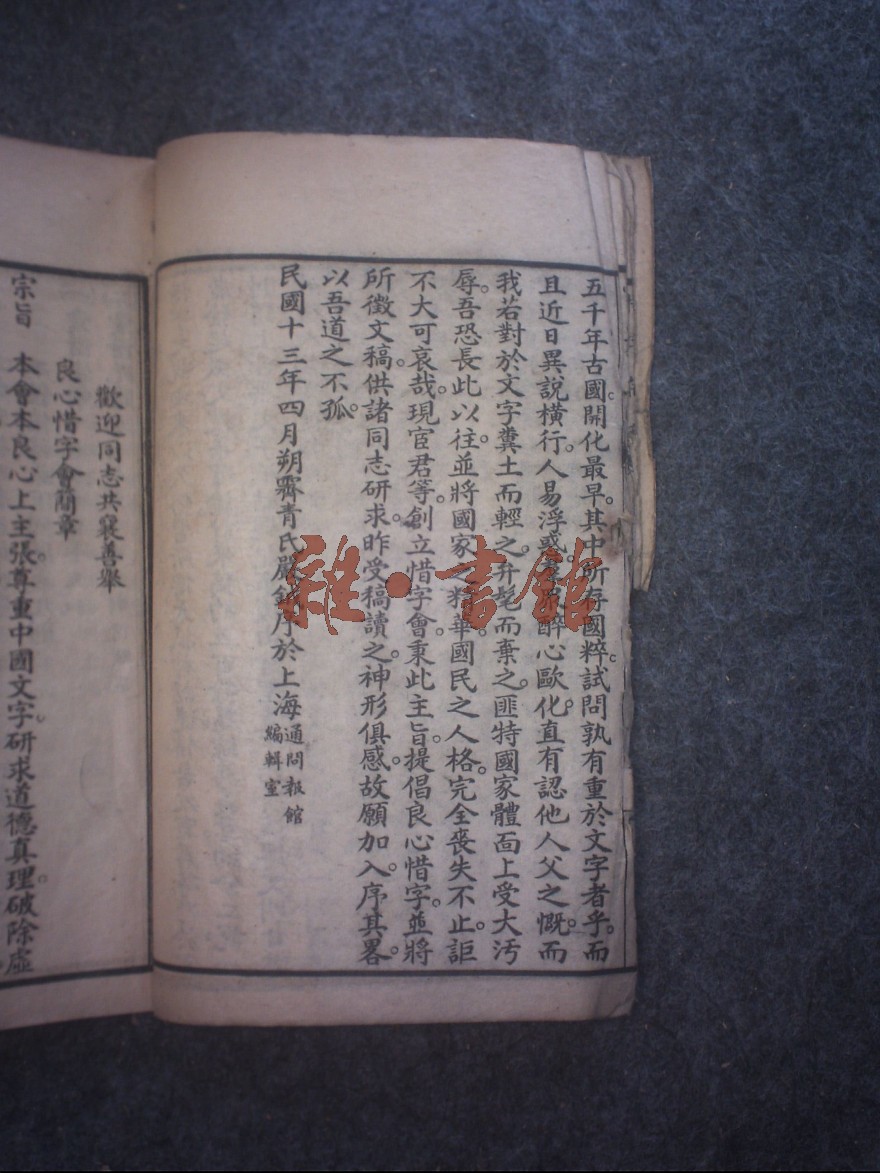 五千年古國。開化最早。其中所存國粹。試問孰有重於文字者乎。而
且近日異說橫行。人易浮惑。醉心歐化。直有認他人父之慨。而
我若對於文字糞土而輕之。弁髦而棄之。匪特國家體面上受大污
辱。吾恐長此以往。並將國家之粹華。國民之人格。完全喪失不止。詎
不大可哀哉。現宦君等。創立惜字會。秉此主旨。提倡良心惜字。並將
所徵文稿。供諸同志研求。昨受稿讀之。神形俱感。故願加入。序其畧。
以吾道之不孤。
民國十三年四月朔霽青氏嚴序於上海通問報館編輯室
歡迎同志共襄善舉
良心惜字會簡章
宗旨 本會本良心上主張。尊重中國文字。研求道德真理。破除虛
雜·書館